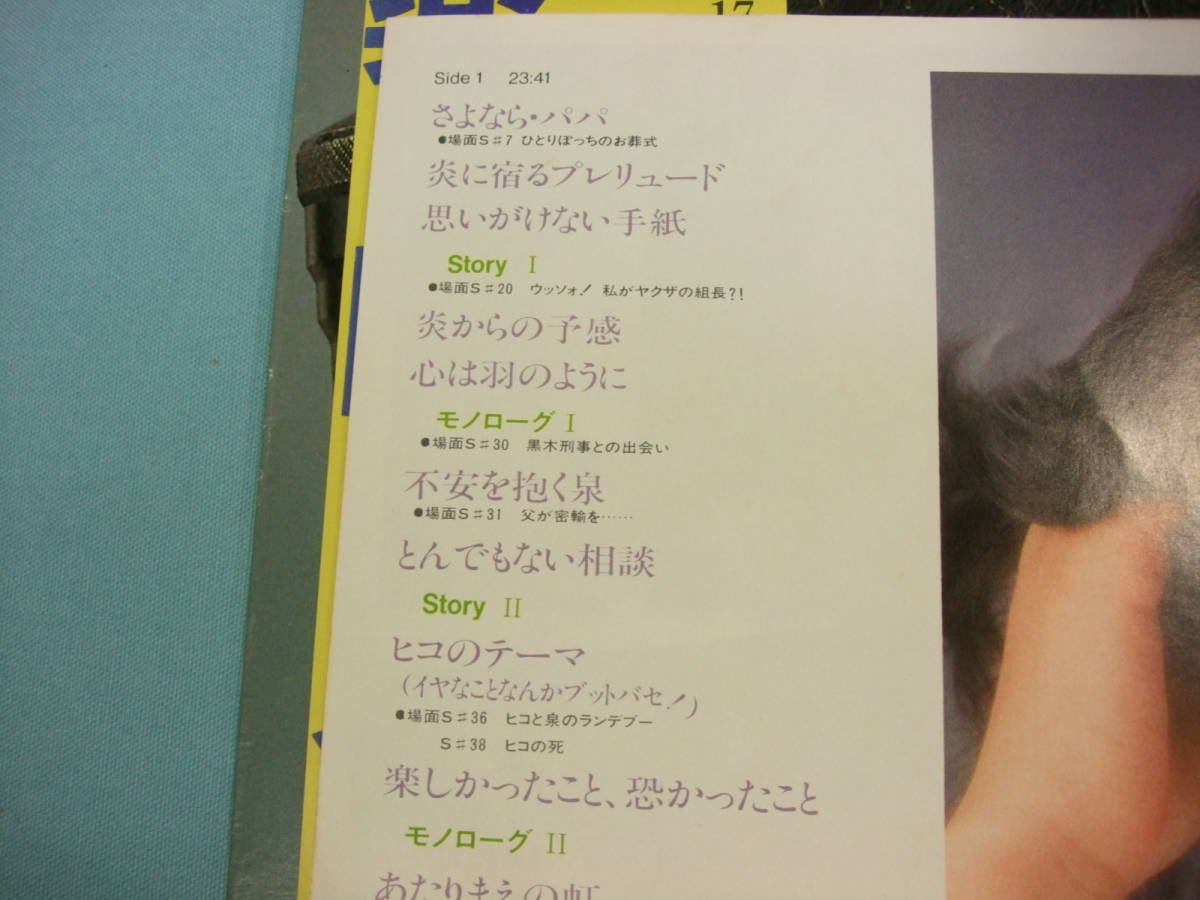 17
Side 1 23:41
さよなら・パパ
●場面S♯7 ひとりぼっちのお葬式
炎に宿るプレリュード
思いがけない手紙
Story Ⅰ
●場面S♯20 ウッソォ! 私がヤクザの組長?!
炎からの予感
心は羽のように
モノローグ Ⅰ
●場面S♯30 黒木刑事との出会い
不安を抱く泉
●場面S♯31 父が密輸を……
とんでもない相談
Story Ⅱ
ヒコのテーマ
(イヤなことなんかブットバセ!)
●場面S♯36 ヒコと泉のランデブー
S♯38 ヒコの死
楽しかったこと、恐かったこと
モノローグ Ⅱ
あたりまえの虹